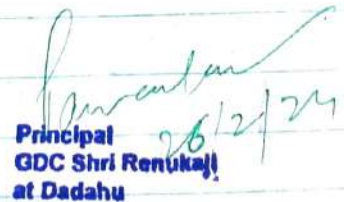 26/2/24
Principal
GDC Shri Renukaji
at Dadahu